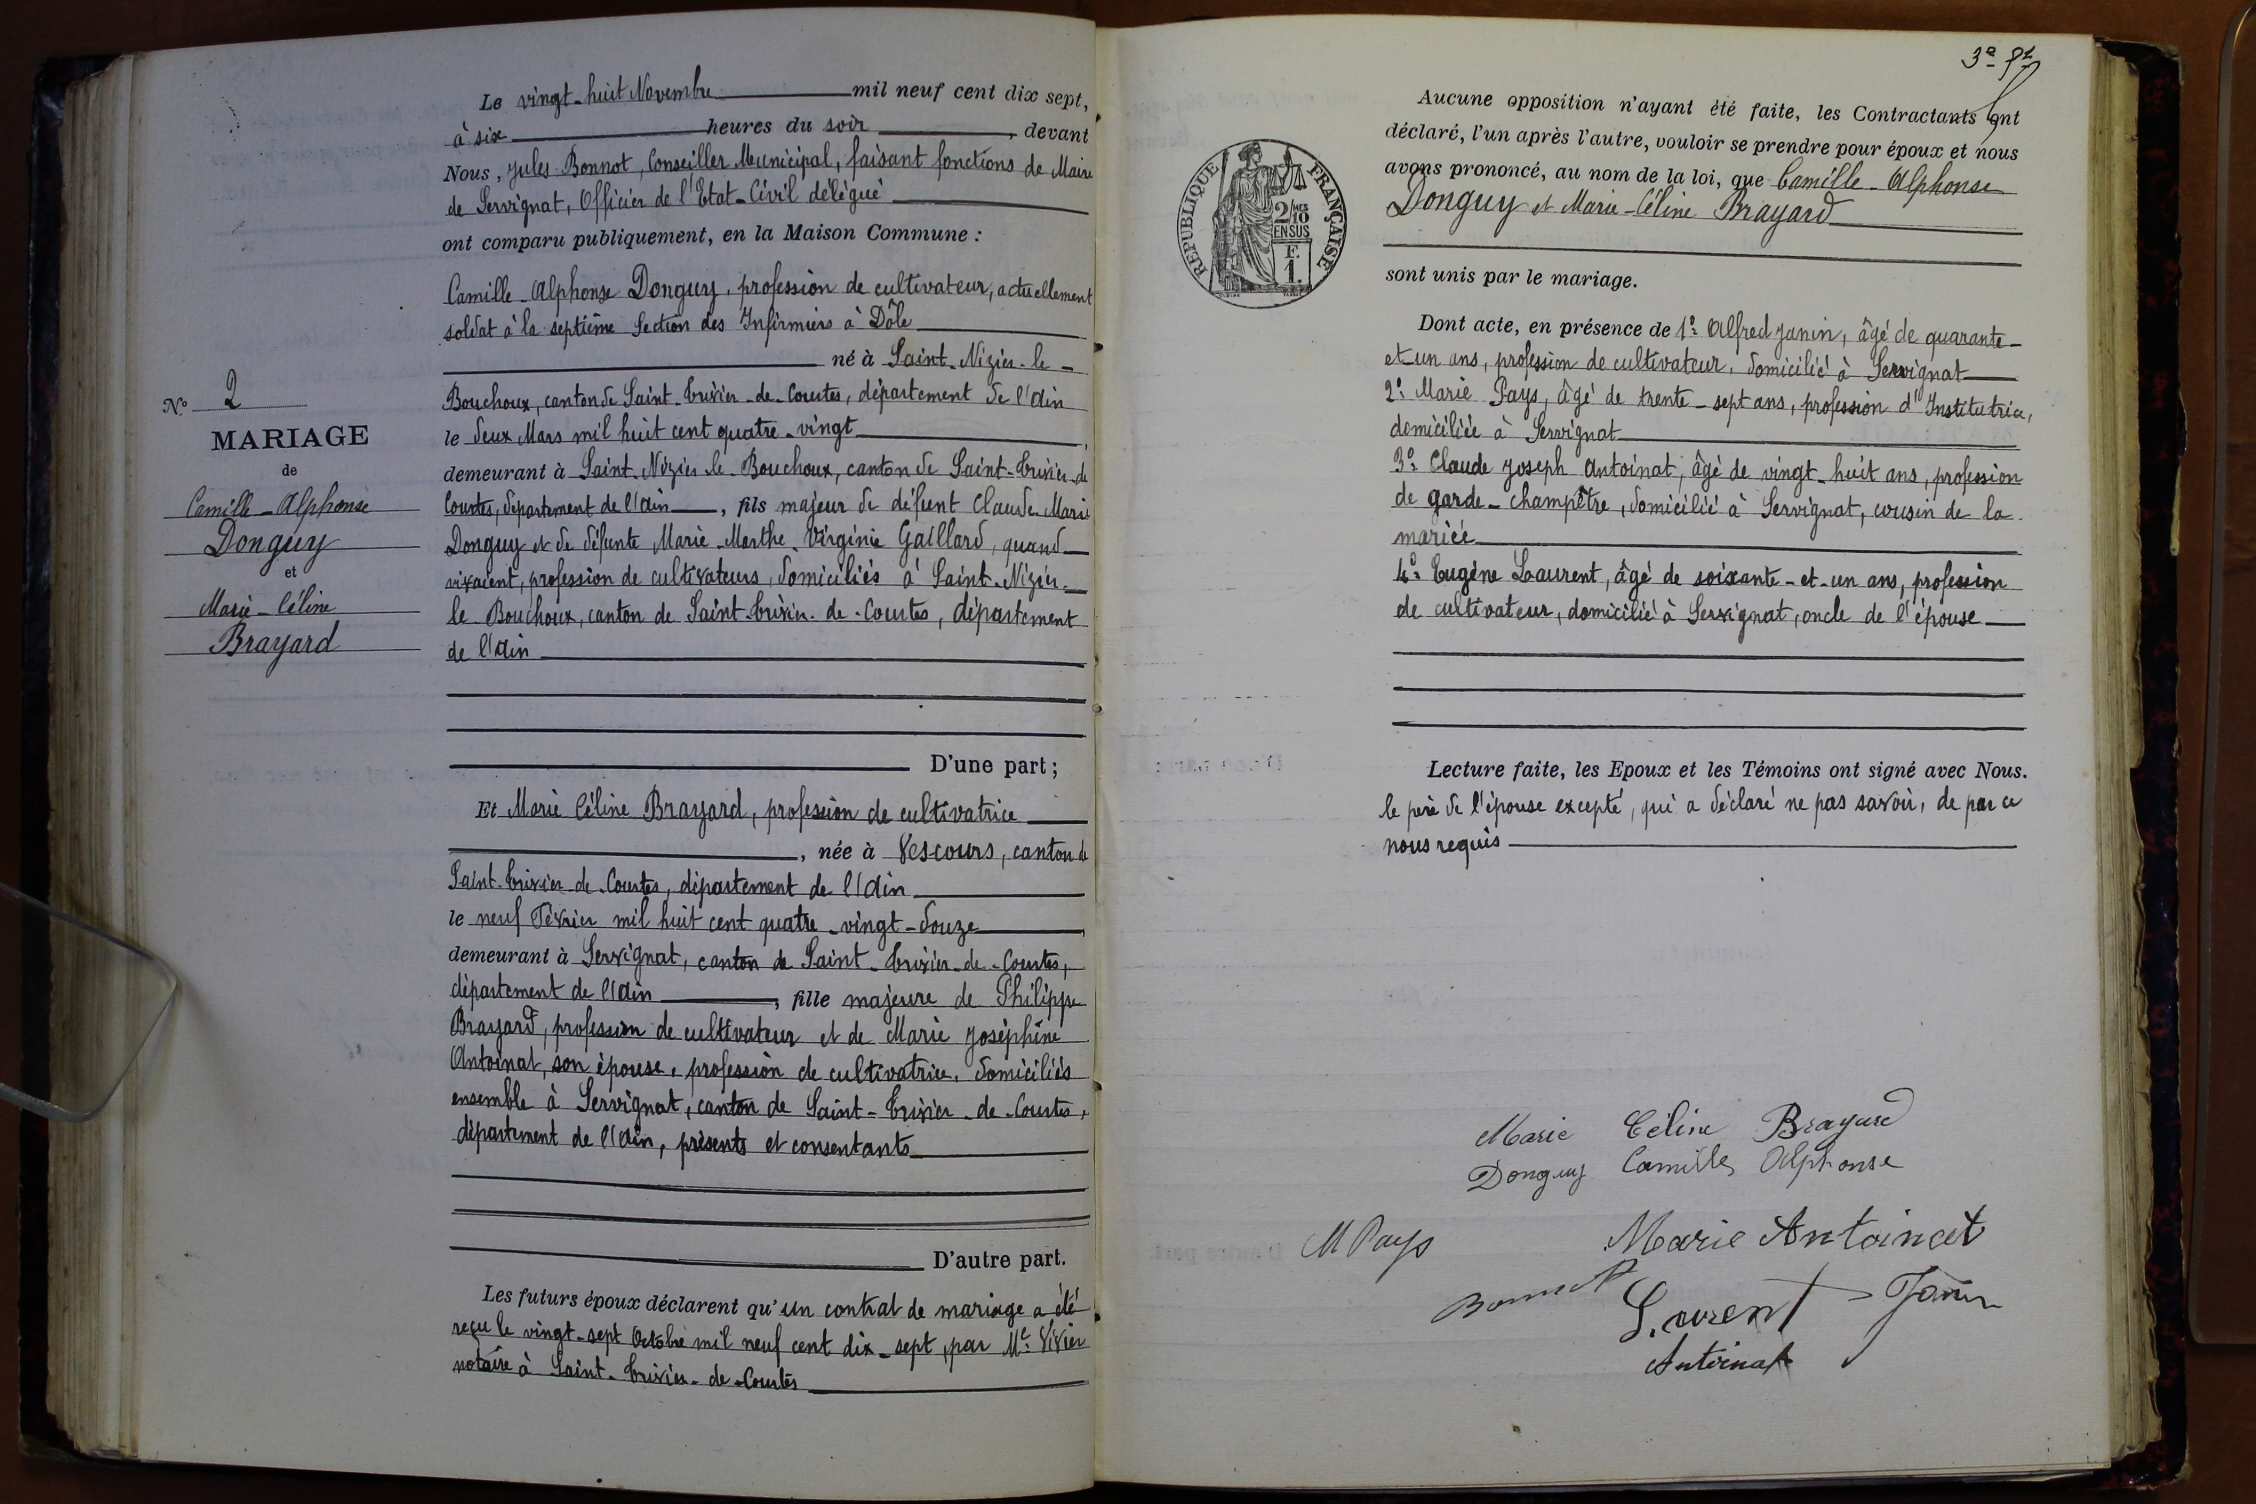 Le vingt-huit Novembre mil neuf cent dix sept,
à six heures du soir, devant
Nous, Jules Bonnot, Conseiller Municipal, faisant fonctions de Maire
de Servignat, Officier de l'Etat-Civil délégué
ont comparu publiquement, en la Maison Commune :
Camille-Alphonse Donguy, profession de cultivateur, actuellement
soldat à la septième Section des Infirmiers à Dôle
né à Saint-Nizier-le-
Bouchoux, canton de Saint-Trivier-de-Courtes, département de l'Ain
le deux Mars mil huit cent quatre-vingt,
demeurant à Saint-Nizier-le-Bouchoux, canton de Saint-Trivier-de
Courtes, département de l'Ain, fils majeur de défunt Claude-Marie
Donguy et de défunte Marie-Marthe-Virginie Gaillard, quand
vivaient, profession de cultivateurs, domiciliés à Saint-Nizier-
le Bouchoux, canton de Saint-Trivier-de-Courtes, département
de l'Ain
D'une part;
Et Marie Céline Brayard, profession de cultivatrice
, née à Vescours, canton de
Saint-Trivier-de-Courtes, département de l'Ain
le neuf Février mil huit cent quatre-vingt-douze,
demeurant à Servignat, canton de Saint-Trivier-de-Courtes,
département de l'Ain, fille majeure de Philippe
Brayard, profession de cultivateur et de Marie Joséphine
Antoinat, son épouse, profession de cultivatrice, domiciliés
ensemble à Servignat, canton de Saint-Trivier-de-Courtes,
département de l'Ain, présents et consentants
D'autre part.
Les futurs époux déclarent qu'un contrat de mariage a été
reçu le vingt-sept Octobre mil neuf cent dix-sept, par Me Vivier
notaire à Saint-Trivier-de-Courtes
N° 2
MARIAGE
de
Camille-Alphonse
Donguy
et
Marie-Céline
Brayard
Aucune opposition n'ayant été faite, les Contractants ont
déclaré, l'un après l'autre, vouloir se prendre pour époux et nous
avons prononcé, au nom de la loi, que Camille-Alphonse
Donguy et Marie-Céline Brayard
sont unis par le mariage.
REPUBLIQUE FRANÇAISE
2/10 MES
EN SUS
F.
1.
Dont acte, en présence de 1° Alfred Janin, âgé de quarante-
et un ans, profession de cultivateur, domicilié à Servignat
2° Marie Pays, âgé de trente-sept ans, profession d'Institutrice,
domiciliée à Servignat
3° Claude Joseph Antoinat, âgé de vingt-huit ans, profession
de garde-champêtre, domicilié à Servignat, cousin de la
mariée
4° Eugène Laurent, âgé de soixante-et-un ans, profession
de cultivateur, domicilié à Servignat, oncle de l'épouse
Lecture faite, les Epoux et les Témoins ont signé avec Nous.
le père de l'épouse excepté, qui a déclaré ne pas savoir, de par ce
nous requis
Marie Céline Brayard
Donguy Camille Alphonse
M Pays
Marie Antoinat
Bonnot
Laurent
Janin
Antoinat